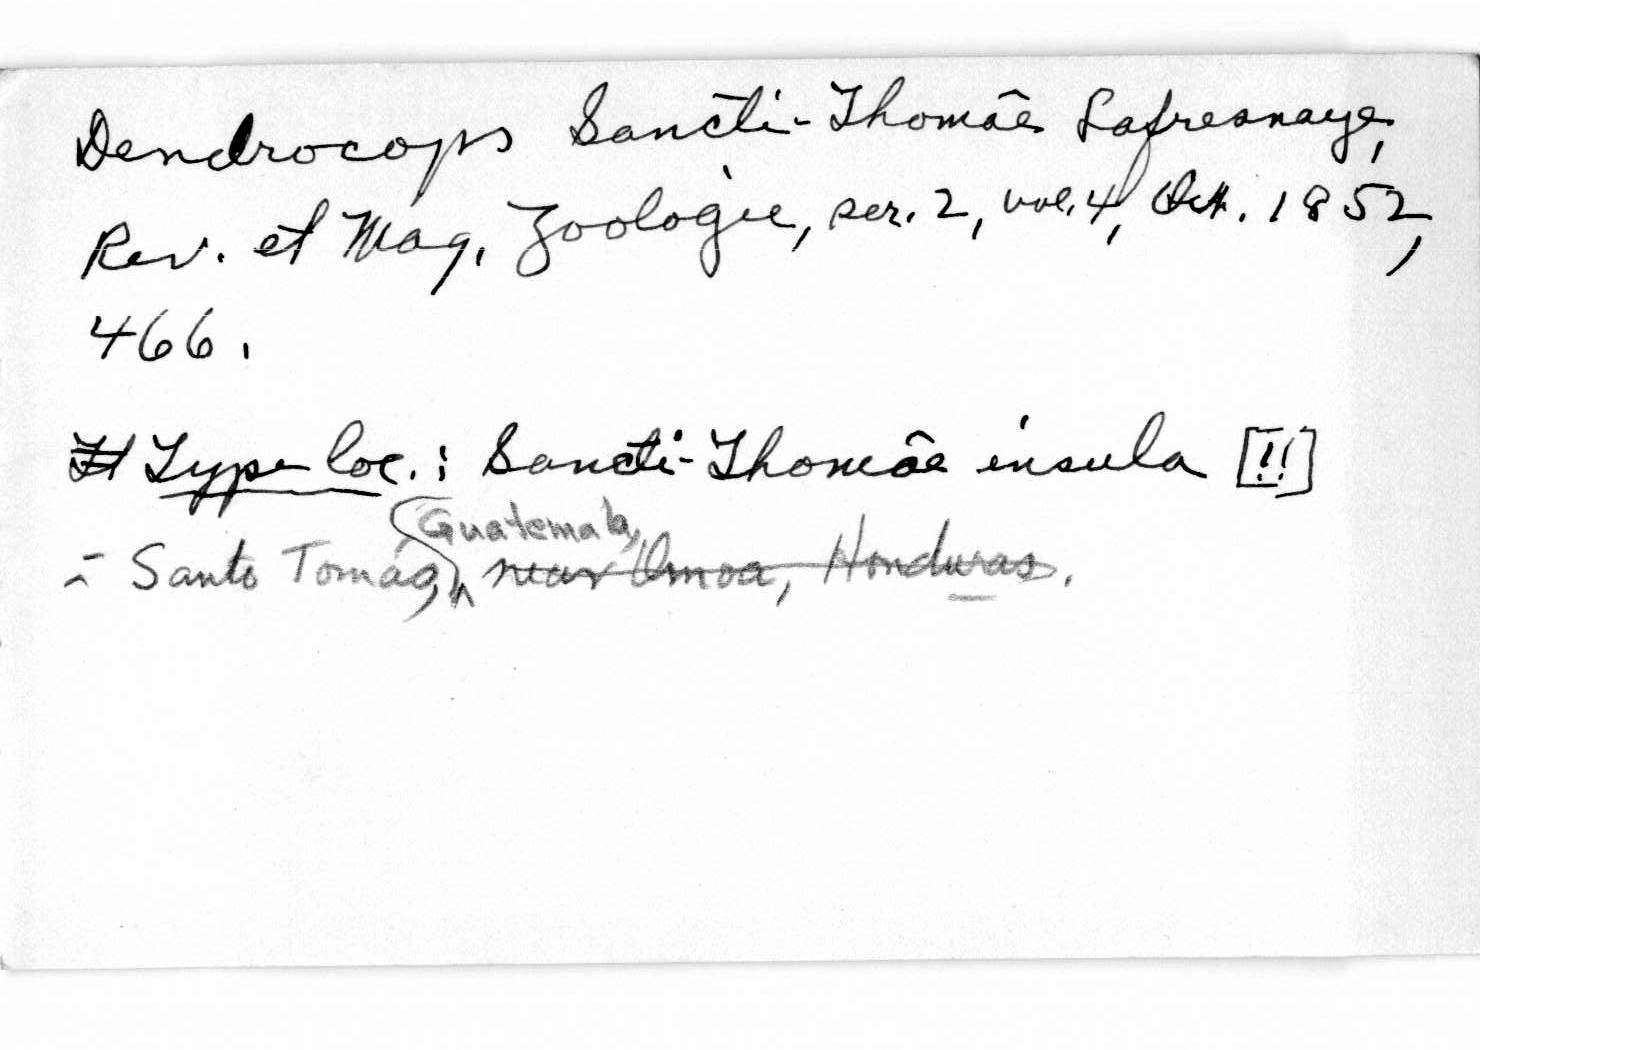 Dendrocops Sancti-Thomæ Lafresnaye,
Rev. et Mag. Zoologie, ser. 2, vol. 4, Oct. 1852,
466.
Type loc.: Sancti-Thomæ insula [!!]
Guatemala,
= Santo Tomás, near Omoa, Honduras.